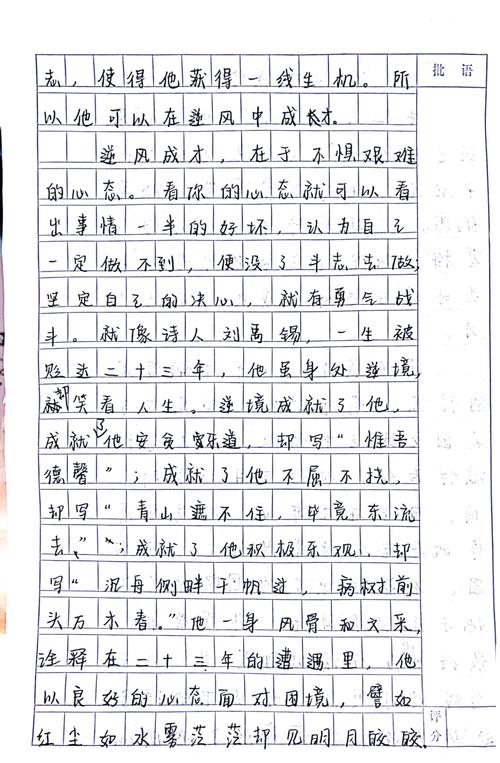 批语
志，使得他获得一线生机。所
以他可以在逆风中成长才。
逆风成才，在于不惧艰难
的心态。看你的心态就可以看
出事情一半的好坏，认为自己
一定做不到，便没了斗志去做；
坚定自己的决心，就有勇气战
斗。就像诗人刘禹锡，一生被
贬达二十三年，他虽身处逆境，
却笑看人生。逆境成就了他，
成就了他安贫乐道，却写“惟吾
德馨”；成就了他不屈不挠，
却写“青山遮不住，毕竟东流
去”；成就了他积极乐观，却
写“沉舟侧畔千帆过，病树前
头万木春。”他一身风骨和文采，
诠释在二十三年的遭遇里，他
以良好的心态面对困境，譬如
红尘如水雾茫茫却见明月皎皎.
评分